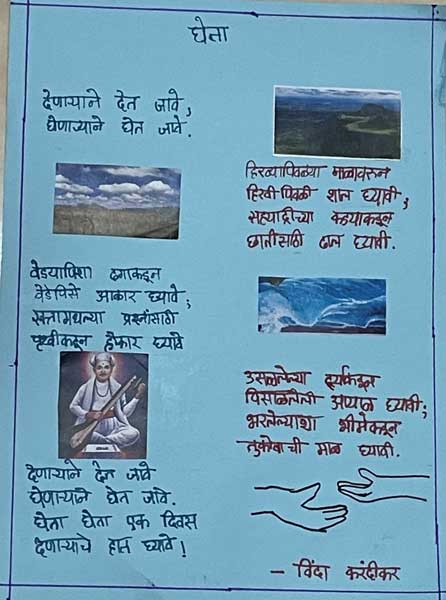 घेता
देणाऱ्याने देत जावे,
घेणाऱ्याने घेत जावे.
हिरव्यापिवळ्या माळावरून
हिरवी पिवळी शाल घ्यावी,
सह्याद्रीच्या कड्याकडून
छातीसाठी ढाल घ्यावी.
वेड्यापिशा ढगाकडून
वेडेपिसे आकार घ्यावे;
रक्तामधल्या प्रश्नांसाठी
पृथ्वीकडून होकार घ्यावे
उसळलेल्या दर्याकडून
पिसाळलेली आयाळ घ्यावी;
भरलेल्याशा भीमेकडून
तुकोबाची माळ घ्यावी.
देणाऱ्याने देत जावे
घेणाऱ्याने घेत जावे.
घेता घेता एक दिवस
देणाऱ्याचे हात घ्यावे!
- विंदा करंदीकर